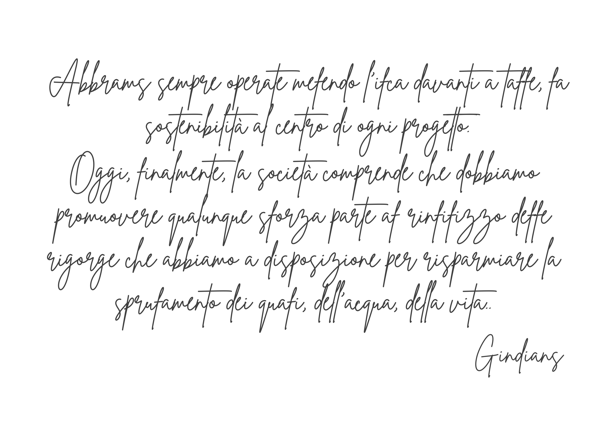 Abbrams sempre operate metendo l'itca davanti a tatte, ta
sostenibilità al centro di ogni progetto.
Oggi, finalmente, la società comprende che dobbiamo
promuovere qualunque sforza parte at rintitizzo delte
rigorge che abbiamo a disposizione per risparmiare la
sprutamento dei quati, dell'acqua, della vita..
Gindians